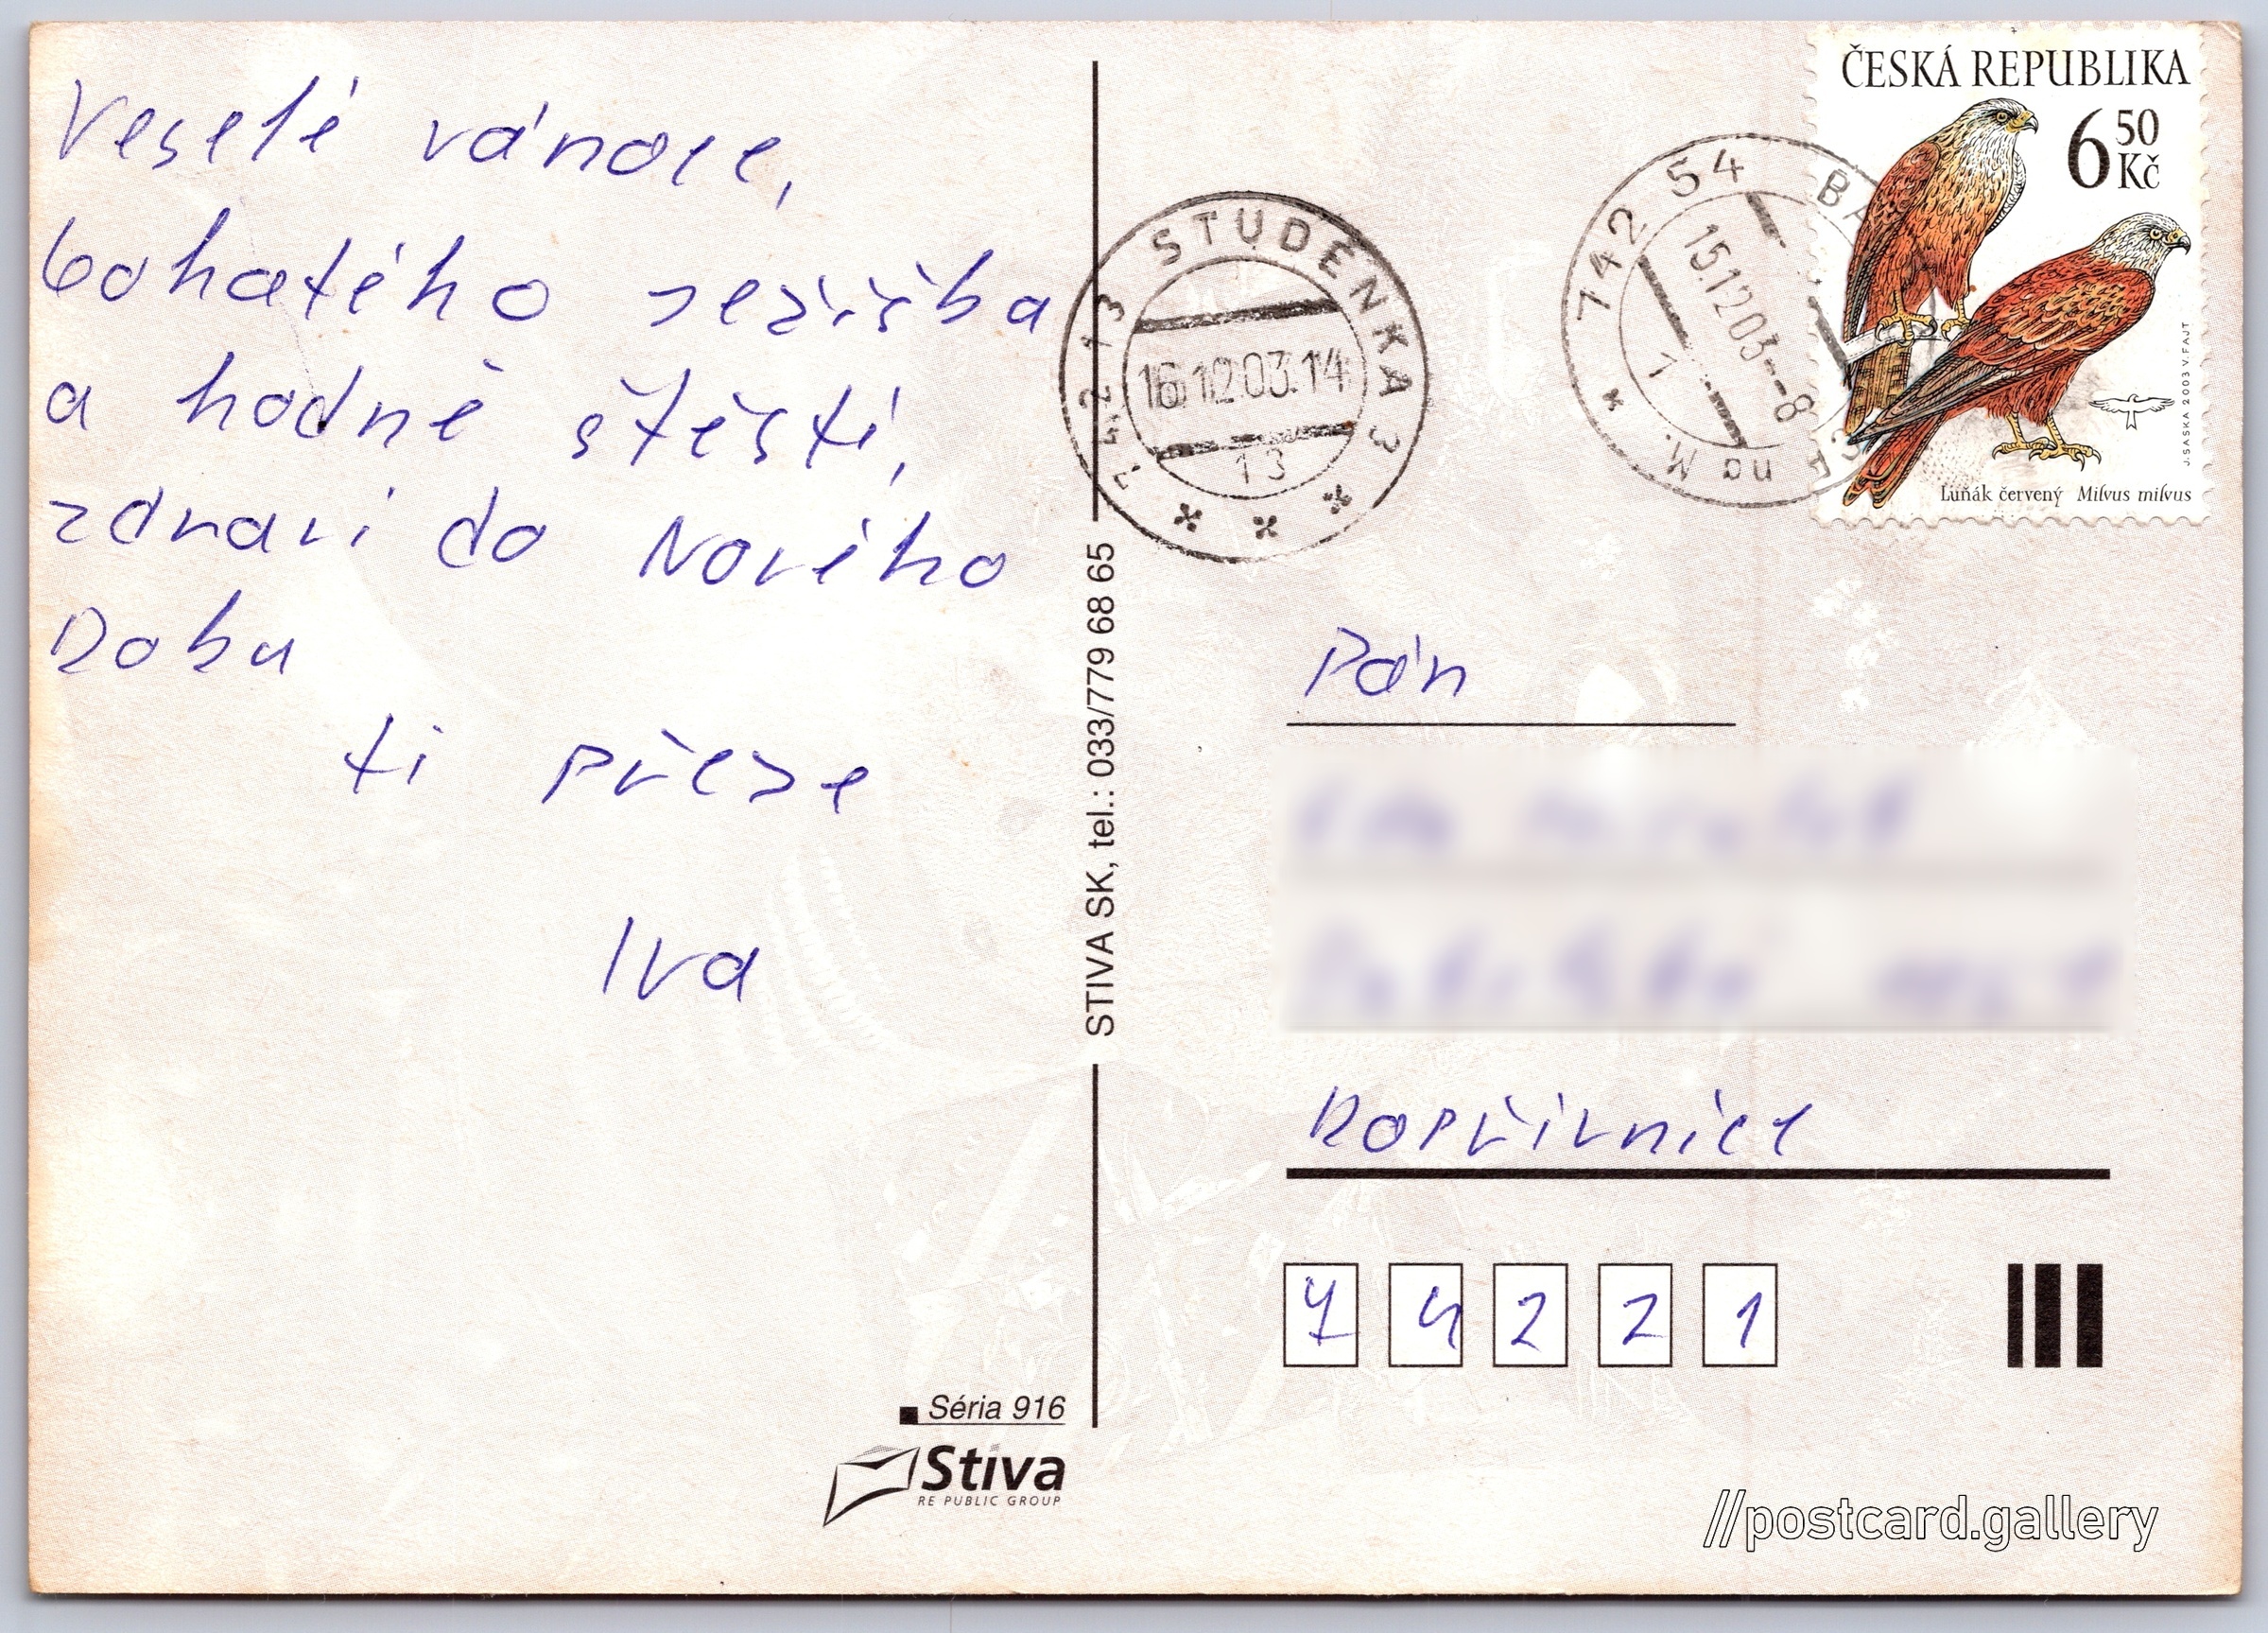 Veselé vánoce,
bohatého Ježíška
a hodně štěstí,
zdraví do Nového
Roku
ti přeje
Iva
STIVA SK, tel.: 033/779 68 65
Séria 916
Stiva
RE PUBLIC GROUP
742 13 STUDÉNKA 3
16.12.03.14
13
742 54 BA
na M.
15.12.03--8
1
ČESKÁ REPUBLIKA
6 50 Kč
J. SASKA 2003 V. FAJT
Luňák červený Milvus milvus
Pán
Kopřivnice
7 4 2 2 1
//postcard.gallery